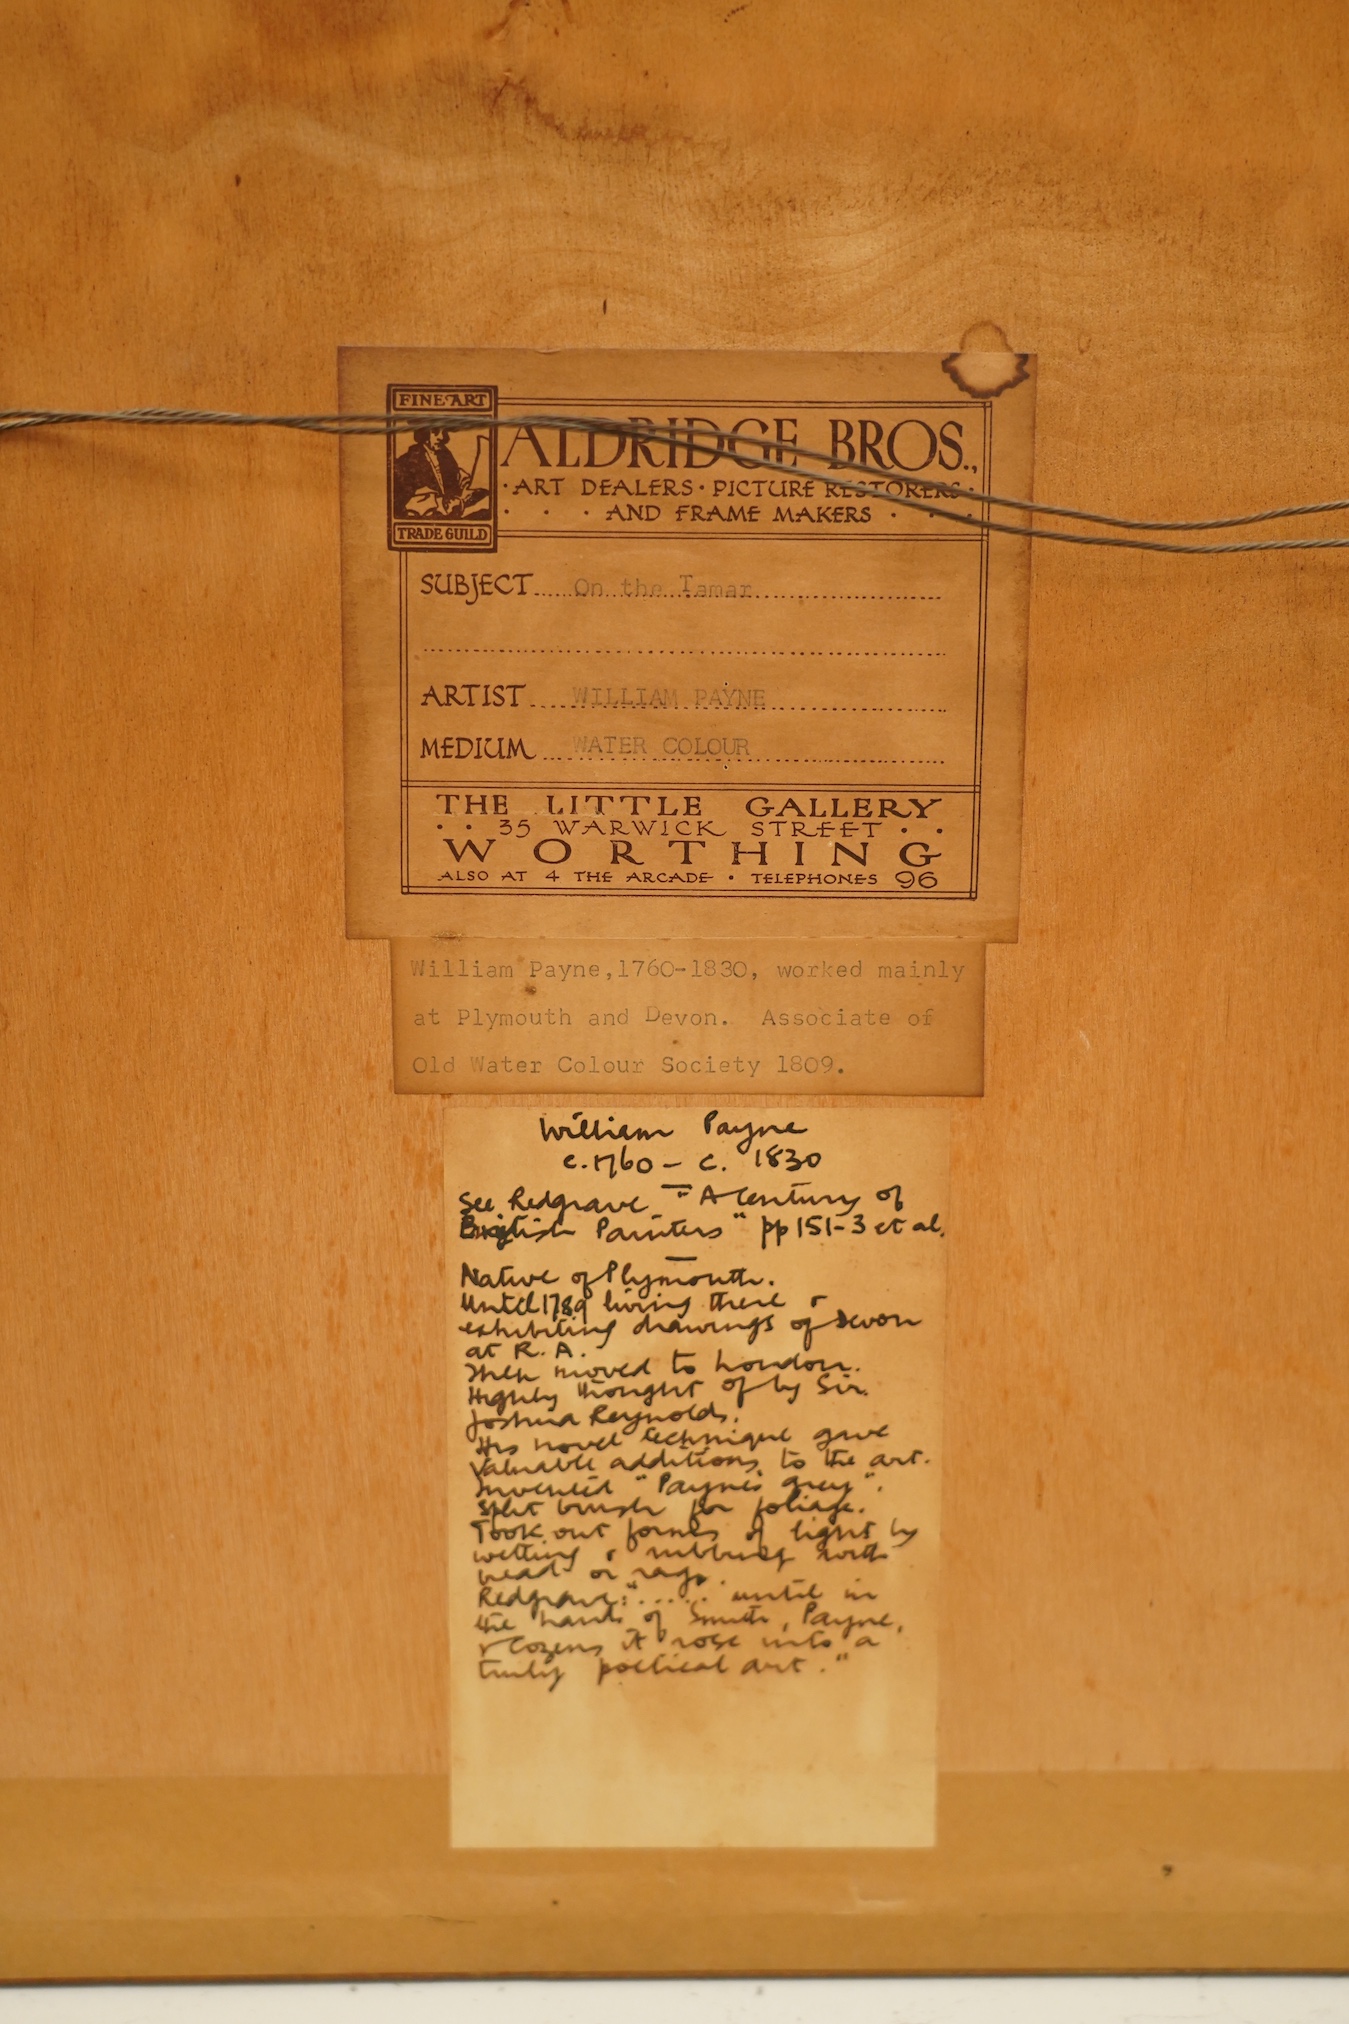 FINE ART
TRADE GUILD
ALDRIDGE BROS.,
· ART DEALERS · PICTURE RESTORERS ·
· · · AND FRAME MAKERS · · ·
SUBJECT....On the Tamar....................
ARTIST....WILLIAM PAYNE....................
MEDIUM...WATER COLOUR....................
THE LITTLE GALLERY
· · 35 WARWICK STREET · ·
WORTHING
ALSO AT 4 THE ARCADE · TELEPHONES 96
William Payne,1760-1830, worked mainly
at Plymouth and Devon. Associate of
Old Water Colour Society 1809.
William Payne
c.1760 – c. 1830
See Redgrave – "A Century of
British Painters" pp 151-3 et al.
Native of Plymouth.
Until 1789 living there &
exhibiting drawings of Devon
at R.A.
Then moved to London.
Highly thought of by Sir
Joshua Reynolds.
His novel technique gave
valuable additions to the art.
Invented "Payne's grey".
Split brush for foliage.
Took out forms of light by
wetting & rubbing with
bread or rags.
Redgrave: "..... until in
the hands of Smith, Payne,
& Cozens it rose into a
truly poetical art."